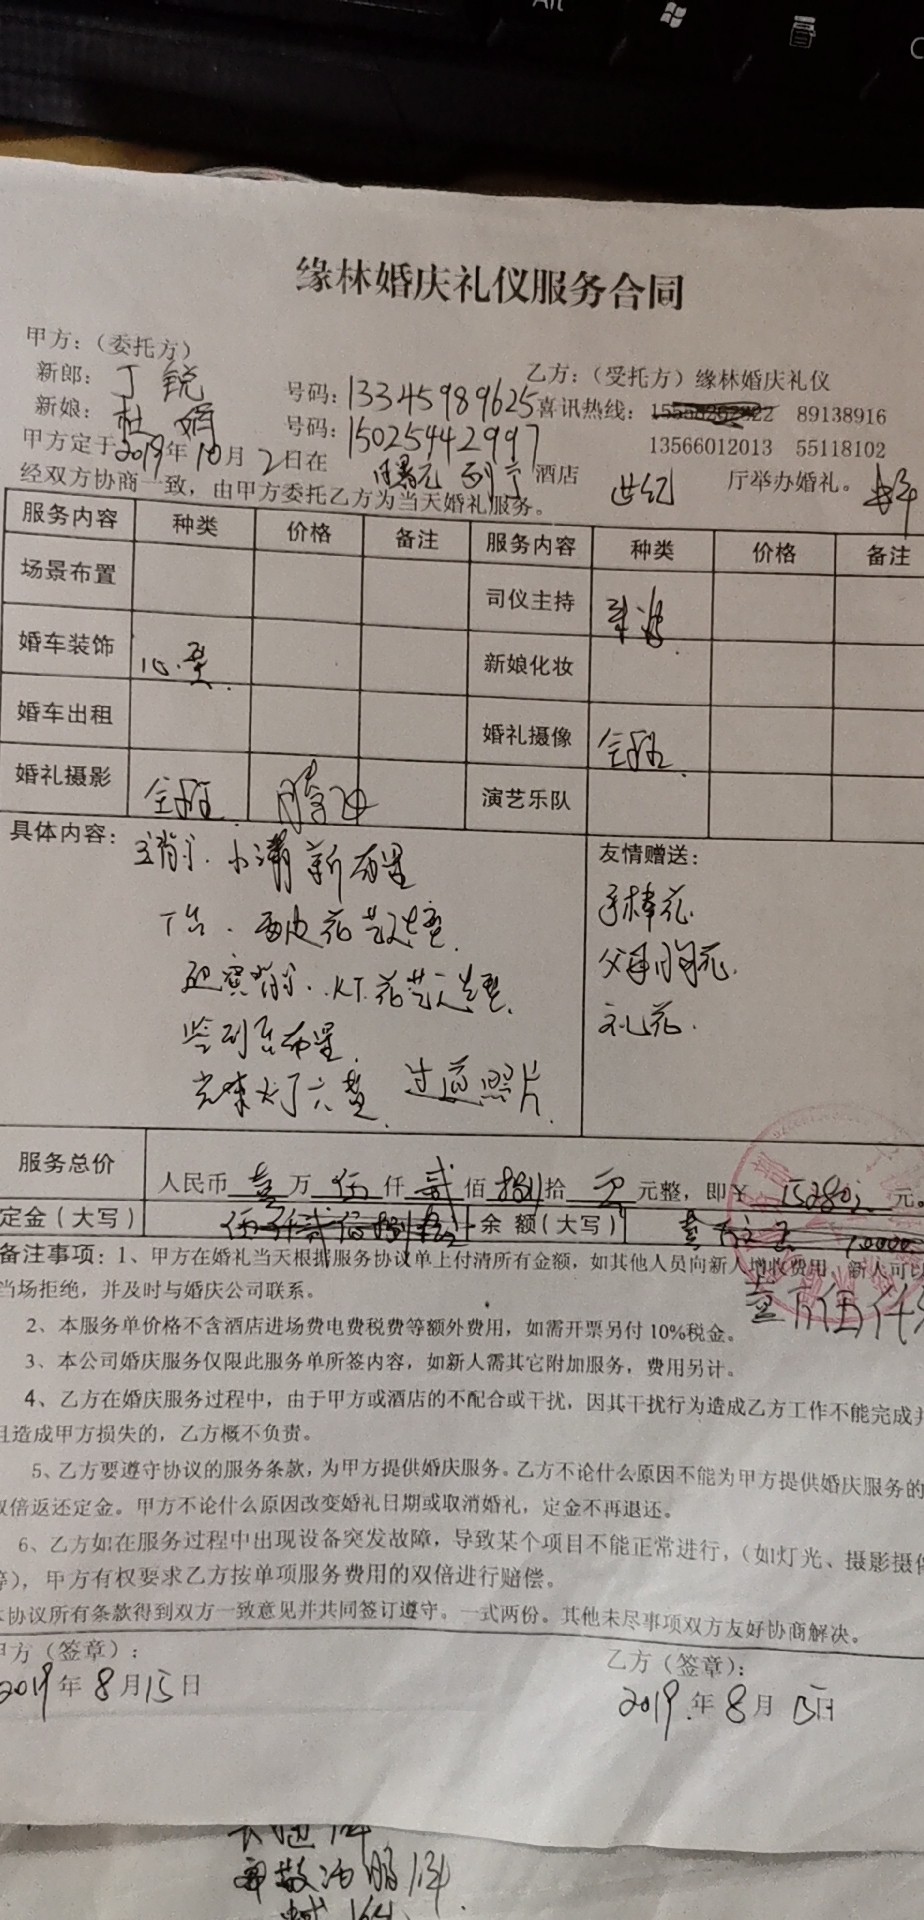 Alt
缘林婚庆礼仪服务合同
甲方：（委托方）
乙方：（受托方）缘林婚庆礼仪
新郎：丁锐 号码：13345989625 喜讯热线： 89138916
新娘：杜娟 号码：15025442997 13566012013 55118102
甲方定于2019年10月2日在 酒店 世纪 厅举办婚礼。
经双方协商一致，由甲方委托乙方为当天婚礼服务。
服务内容 种类 价格 备注 服务内容 种类 价格 备注
场景布置 司仪主持
婚车装饰 心型 新娘化妆
婚车出租 婚礼摄像 全程
婚礼摄影 全程 演艺乐队
具体内容： 小清新布置
友情赠送：
T台、 花艺造型
手棒花
迎宾 KT.花艺造型
父母胸花
签到台布置
礼花
光束灯六盏 过道照片
服务总价 人民币壹万伍仟贰佰捌拾 元整，即￥15280元。
定金（大写） 伍仟贰佰捌拾 余额（大写） 10000
壹万伍仟
备注事项：1、甲方在婚礼当天根据服务协议单上付清所有金额，如其他人员向新人增收费用，新人可以
当场拒绝，并及时与婚庆公司联系。
2、本服务单价格不含酒店进场费电费税费等额外费用，如需开票另付10%税金。
3、本公司婚庆服务仅限此服务单所签内容，如新人需其它附加服务，费用另计。
4、乙方在婚庆服务过程中，由于甲方或酒店的不配合或干扰，因其干扰行为造成乙方工作不能完成并
且造成甲方损失的，乙方概不负责。
5、乙方要遵守协议的服务条款，为甲方提供婚庆服务。乙方不论什么原因不能为甲方提供婚庆服务的
双倍返还定金。甲方不论什么原因改变婚礼日期或取消婚礼，定金不再退还。
6、乙方如在服务过程中出现设备突发故障，导致某个项目不能正常进行，（如灯光、摄影摄像
等），甲方有权要求乙方按单项服务费用的双倍进行赔偿。
本协议所有条款得到双方一致意见并共同签订遵守。一式两份。其他未尽事项双方友好协商解决。
甲方（签章）：
乙方（签章）：
2019年8月15日
2019.年8月15日